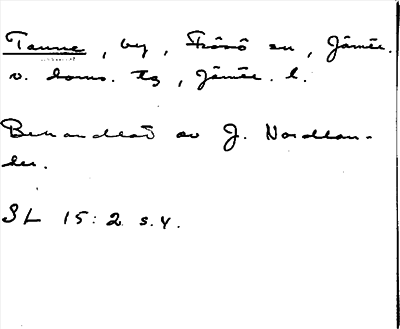 Tanne, by, Frösö sn, Jämtl.
v. doms. tg, Jämtl. l.
Behandlad av J. Nordlan-
der.
SL 15:2 s.4.